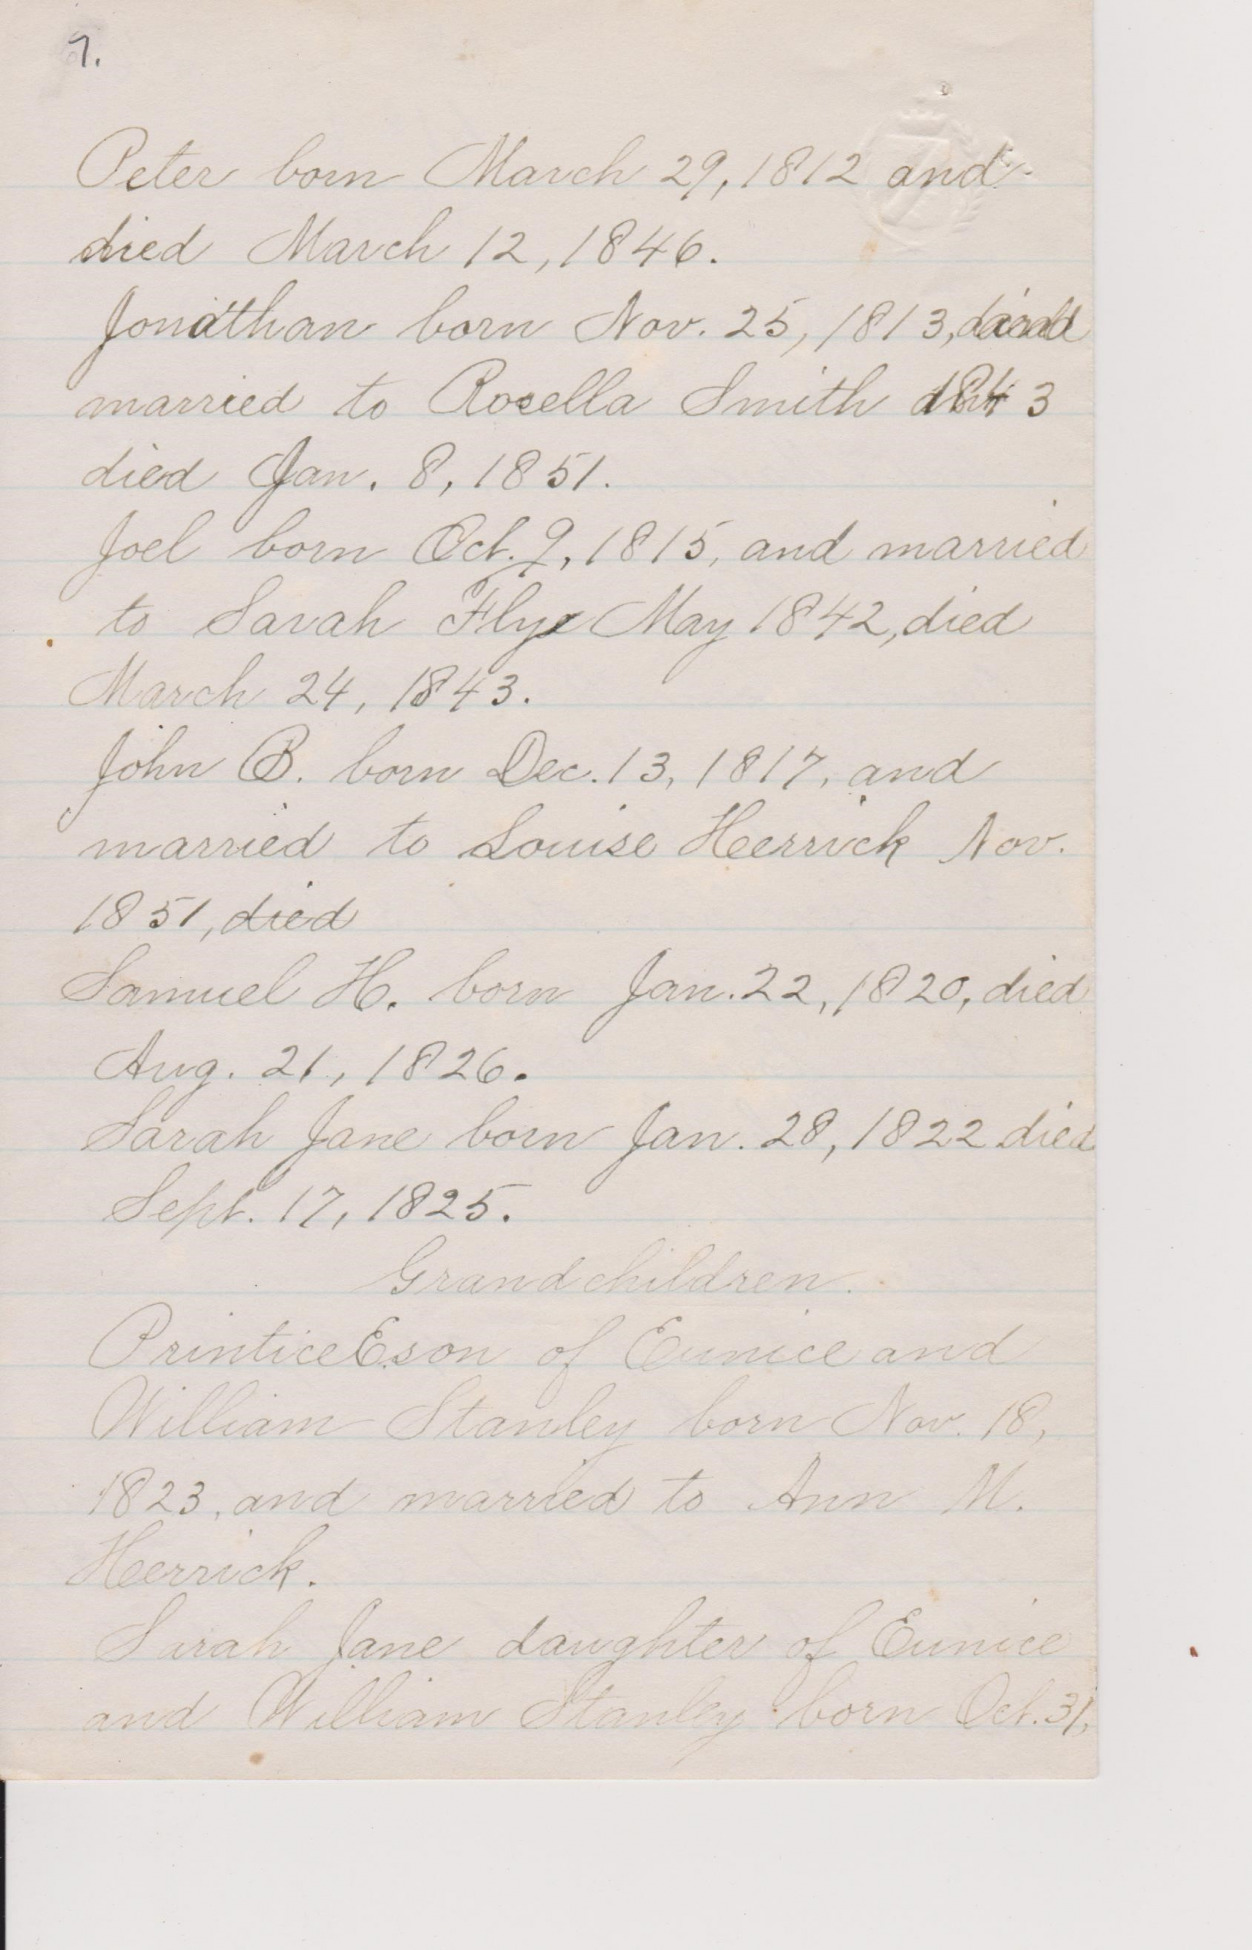 7.
Peter born March 29, 1812 and
died March 12, 1846.
Jonathan born Nov. 25, 1813, and
married to Rosella Smith 1843
died Jan. 8, 1851.
Joel born Oct. 9, 1815, and married
to Sarah Flye May 1842, died
March 24, 1843.
John B. born Dec. 13, 1817, and
married to Louise Herrick Nov.
1851, died
Samuel H. born Jan. 22, 1820, died
Aug. 21, 1826.
Sarah Jane born Jan. 28, 1822 died
Sept. 17, 1825.
Grandchildren.
Printice E. son of Eunice and
William Stanley born Nov. 18,
1823, and married to Ann M.
Herrick.
Sarah Jane daughter of Eunice
and William Stanley born Oct. 31,